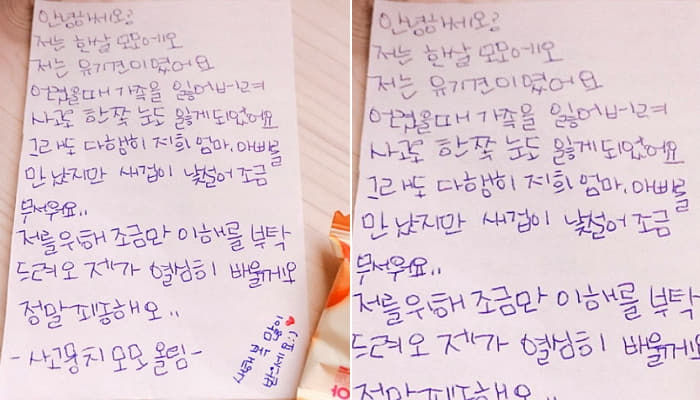 안녕하세요?
저는 한살 모모에오
저는 유기견이였어요
어렸을때 가족을 잃어버려
사고로 한쪽 눈도 잃게되었어요
그래도 다행히 저희 엄마,아빠를
만났지만 새집이 낯설어 조금
무서워요..
저를위해 조금만 이해를 부탁
드려오 제가 열심히 배울게요
정말 죄송해오..
-사고뭉치 모모 올림-
안녕하세요?
저는 한살 모모에오
저는 유기견이였어요
어렸을때 가족을 잃어버려
사고로 한쪽 눈도 잃게되었어요
그래도 다행히 저희 엄마,아빠를
만났지만 새집이 낯설어 조금
무서워요..
저를위해 조금만 이해를 부탁
드려오 제가 열심히 배울게요
정말 죄송해오..